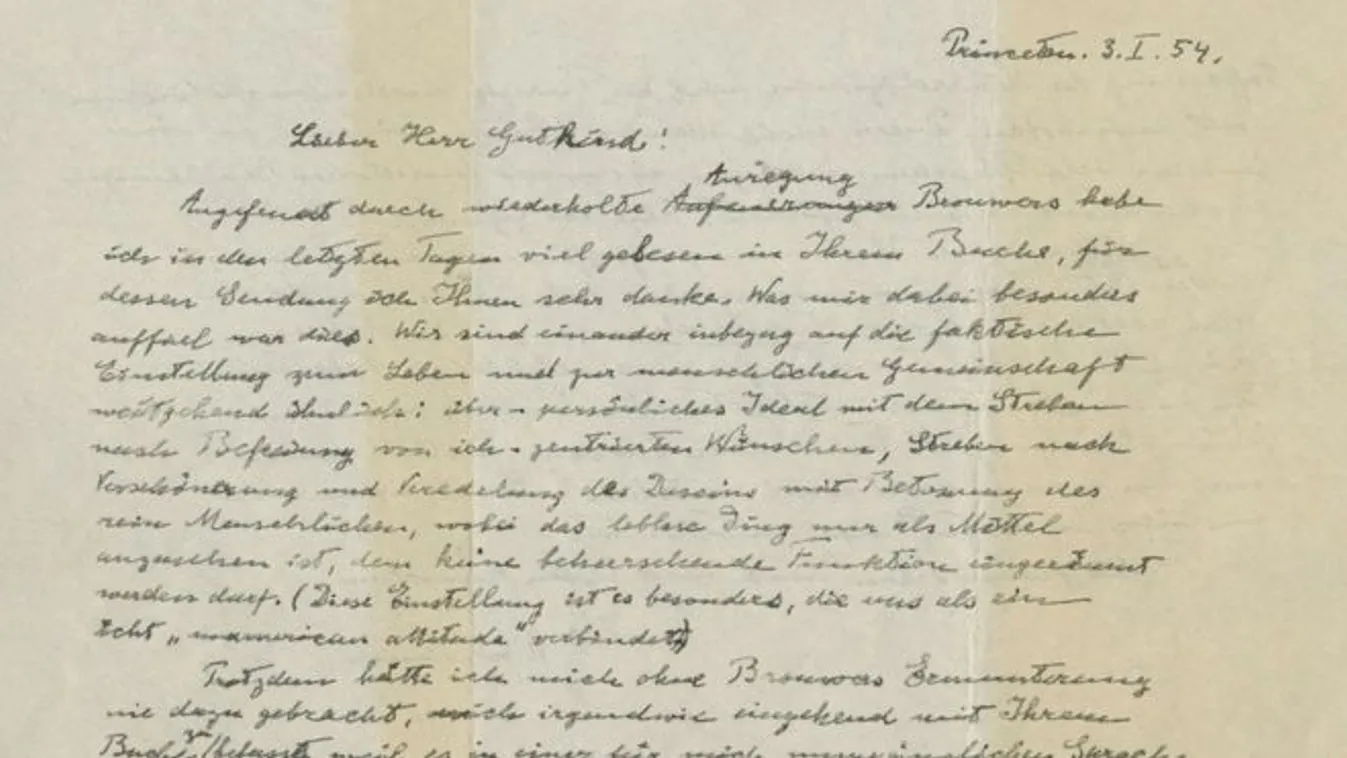 Princeton. 3. I. 54.
Lieber Herr Gutkind!
Anregung
Angefeuert durch wiederholte Brouwers habe
ich in den letzten Tagen viel gelesen in Ihrem Buche, für
dessen Sendung ich Ihnen sehr danke. Was mir dabei besonders
auffiel war dies. Wir sind einander inbezug auf die faktische
Einstellung zum Leben und zur menschlichen Gemeinschaft
weitgehend ähnlich: über-persönliches Ideal mit dem Streben
nach Befreiung von ich-zentrierten Wünschen, Streben nach
Verschönerung und Veredelung des Daseins mit Betonung des
rein Menschlichen, wobei das leblose Ding nur als Mittel
anzusehen ist, dem keine beherrschende Funktion eingeräumt
werden darf. (Diese Einstellung ist es besonders, die uns als ein
echt „unamerican attitude" verbindet.)
Trotzdem hätte ich mich ohne Brouwers Ermunterung
nie dazu gebracht, mich irgendwie eingehend mit Ihrem
Buche zu befassen, weil es in einer für mich unzugänglichen Sprache